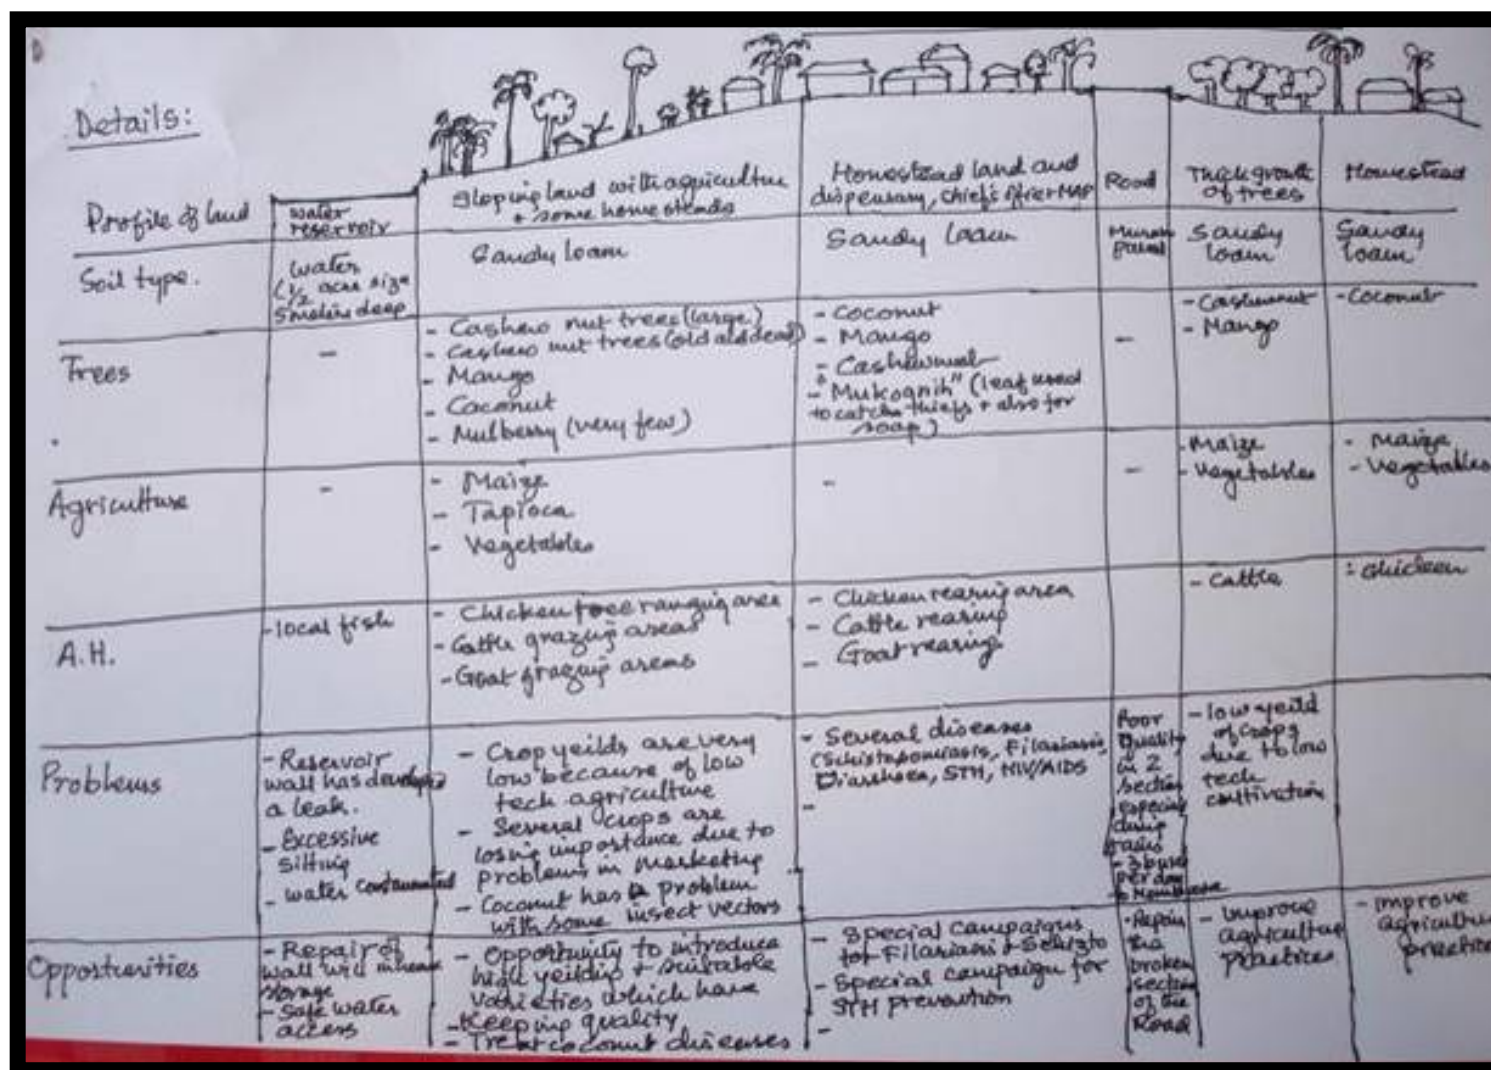 Details:
Profile of land
water
reservoir
Sloping land with agriculture
+ some homesteads
Homestead land and
dispensary, chief's
Road
Thick growth
of trees
Homestead
Soil type.
water
(1/2 acre size
5 metre deep
Sandy loam
Sandy loam
Sandy
loam
Sandy
loam
Trees
-
- Cashew nut trees (large)
- Cashew nut trees (old and dead)
- Mango
- Coconut
- Mulberry (very few)
- Coconut
- Mango
- Cashewnut
- "Mukognih" (leaf used
to catch thiefs + also for
soap)
-
- Cashewnut
- Mango
- Coconut
Agriculture
-
- Maize
- Tapioca
- Vegetables
-
-
- Maize
- Vegetables
- Maize
- Vegetables
A.H.
- local fish
- Chicken free ranging area
- Cattle grazing areas
- Goat grazing areas
- Chicken rearing area
- Cattle rearing
- Goat rearing
- Cattle
- Chicken
Problems
- Reservoir
wall has developed
a leak.
- Excessive
silting
- water contaminated
- Crop yeilds are very
low because of low
tech agriculture
- Several crops are
losing importance due to
problems in marketing
- Coconut has a problem
with some insect vectors
- Several diseases
(Schistosomiasis, Filariasis,
Diarrhoea, STH, HIV/AIDS
-
Poor
Quality
in 2
section
especially
during
rains
- 3 buses
per day
- low yeild
of crops
due to low
tech
cultivation
Opportunities
- Repair of
wall will increase
storage
- Safe water
access
- Opportunity to introduce
high yeilding + suitable
varieties which have
keeping quality
- Treat coconut diseases
- Special campaigns
for Filariasis + Schizto
- Special campaign for
STH prevention
-
- Repair
the
broken
section
of the
Road
- improve
agriculture
practices
- improve
agriculture
practices